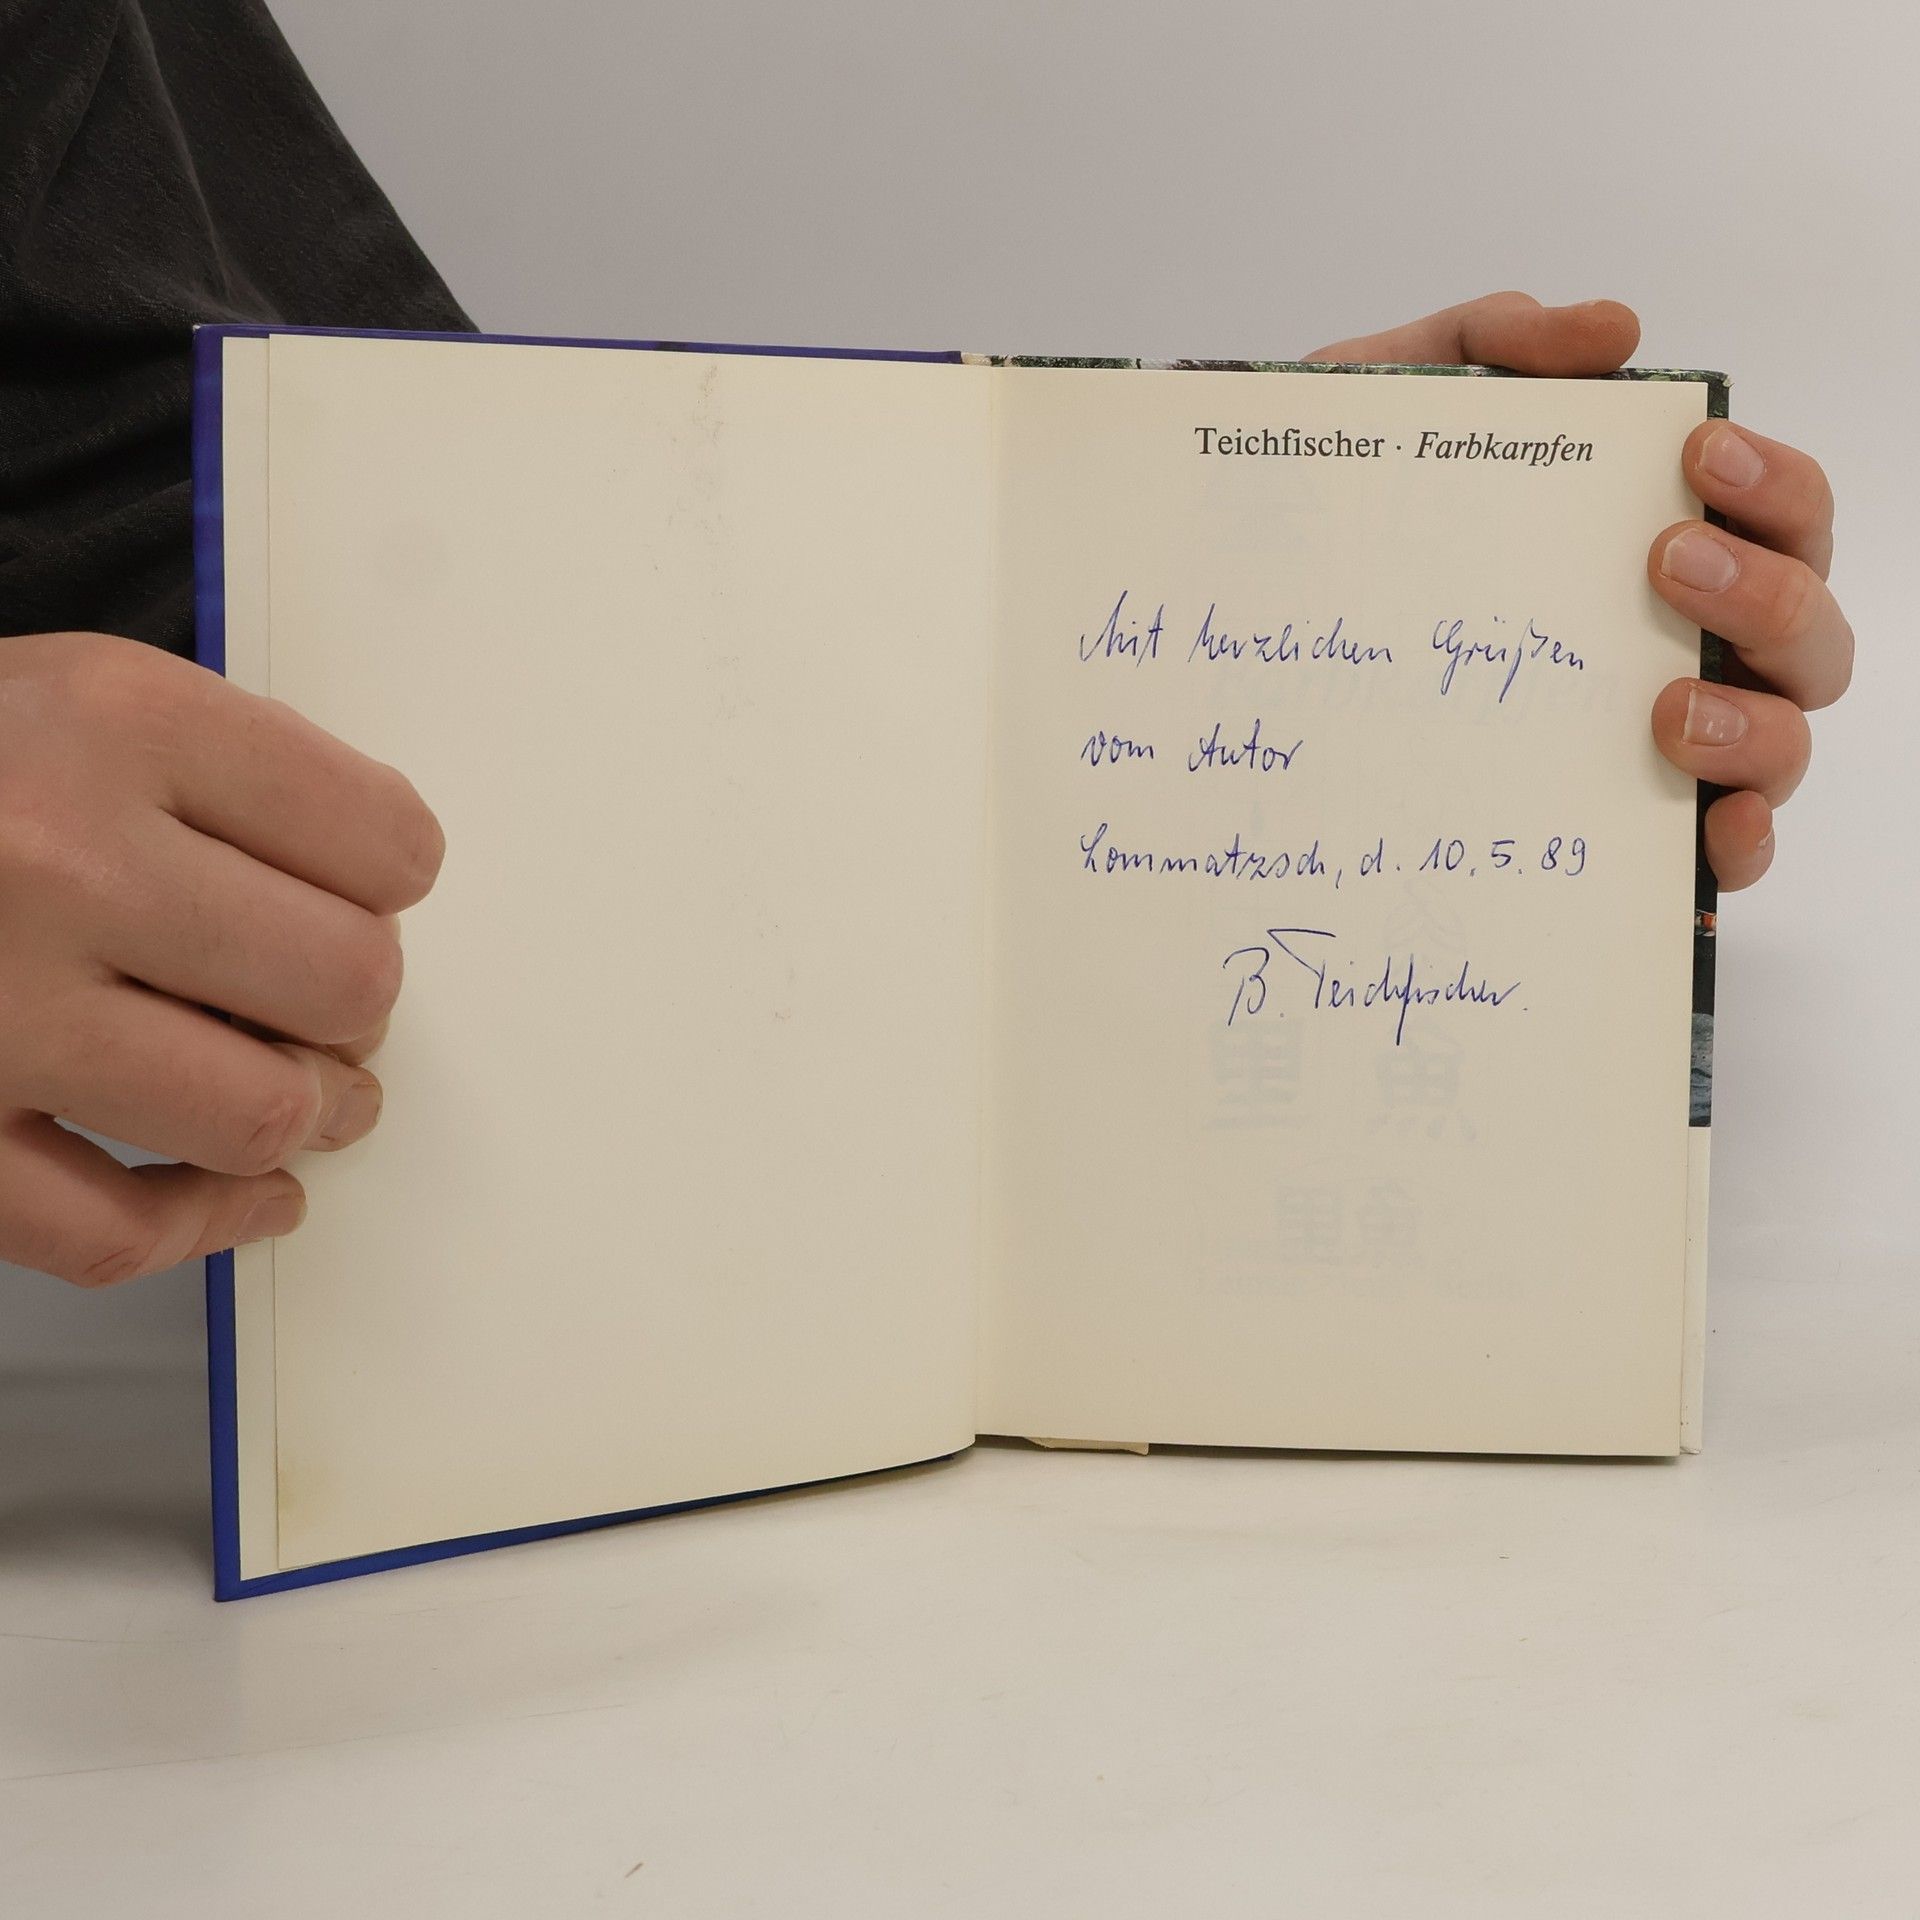 Teichfischer · Farbkarpfen
Mit herzlichen Grüßen
vom Autor
Lommatzsch, d. 10.5.89
B. Teichfischer.